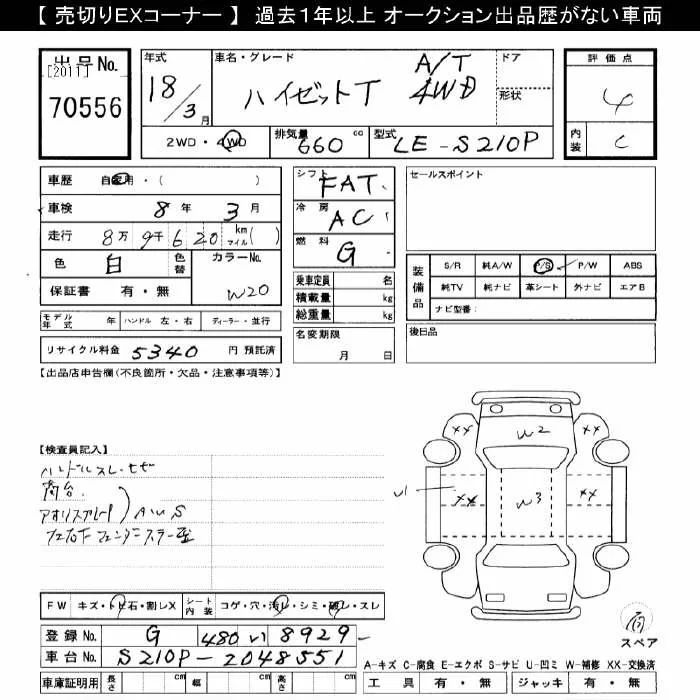 【 売切りEXコーナー 】 過去1年以上 オークション出品歴がない車両
出品No.
[2011]
70556
年式
18/3月
車名・グレード
ハイゼットT
A/T
4WD
ドア
形状
評価点
4
内装
C
2WD・4WD
排気量
660 cc
型式
LE-S210P
車歴 自家用・( )
車検 8年 3月
走行 8万 9千 6 20 km マイル( )
色 白 色替 カラーNo.
W20
保証書 有・無
シフト FAT
冷房 AC
燃料 G
セールスポイント
乗車定員 名
積載量 kg
総重量 kg
名変期限
月 日
装備品
S/R 純A/W P/S P/W ABS
純TV 純ナビ 革シート 外ナビ エアB
ナビ型番:
後日品
モデル年式 年 ハンドル 左・右 ディーラー・並行
リサイクル料金 5340 円 預託済
【出品店申告欄(不良箇所・欠品・注意事項等)】
【検査員記入】
ハンドルスレ・
荷台
AWS
XX W2 XX
U1 XX W3 XX
FW キズ・トビ石・割レX シート内装 コゲ・穴・汚レ・シミ・破レ・スレ
登録No. G 480 い 8929
車台No. S210P-2048551
車庫証明用 長さ cm 幅 cm 高さ cm
スペア
A-キズ C-腐食 E-エクボ S-サビ U-凹ミ W-補修 XX-交換済
工具 有・無 ジャッキ 有・無